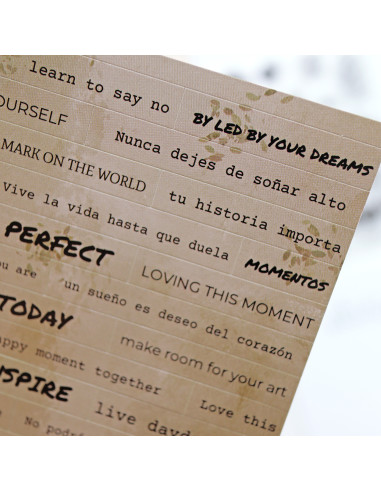 learn to say no
BY LED BY YOUR DREAMS
OURSELF
Nunca dejes de soñar alto
MARK ON THE WORLD
tu historia importa
Vive la vida hasta que duela
MOMENTOS
PERFECT
LOVING THIS MOMENT
ou are
un sueño es deseo del corazón
TODAY
make room for your art
appy moment together
Love this
NSPIRE
live dayd
No podrí